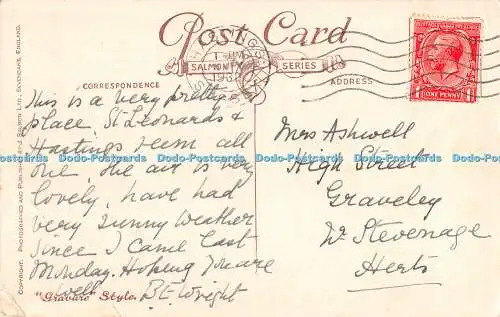 Post Card
SALMON SERIES
CORRESPONDENCE
ADDRESS
ONE PENNY
This is a very pretty
place St Leonards &
Hastings seem all
one. The air is very
lovely, have had
very sunny weather
since I came last
Monday. Hoping you are
well. B.E. Wright
Miss Ashwell
High Street
Graveley
Nr Stevenage
Herts
"Gravure" Style.
COPYRIGHT. PHOTOGRAPHED AND PUBLISHED BY J. SALMON LTD., SEVENOAKS, ENGLAND.
Dodo-Postcards Dodo-Postcards Dodo-Postcards Dodo-Postcards Dodo-Postcards Dodo-Postcards